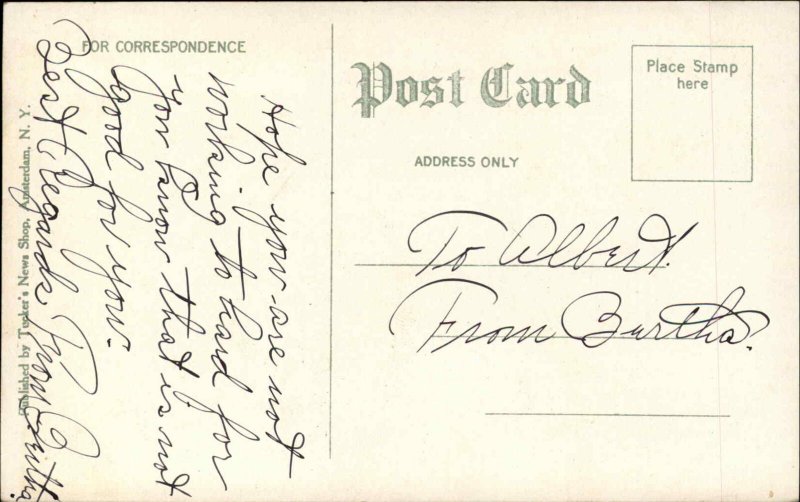 FOR CORRESPONDENCE
Hope you are not
working to hard for
you know that is not
good for you.
Best Regards From Bertha.
Published by Tucker's News Shop, Amsterdam, N. Y.
Post Card
Place Stamp
here
ADDRESS ONLY
To Albert.
From Bertha.